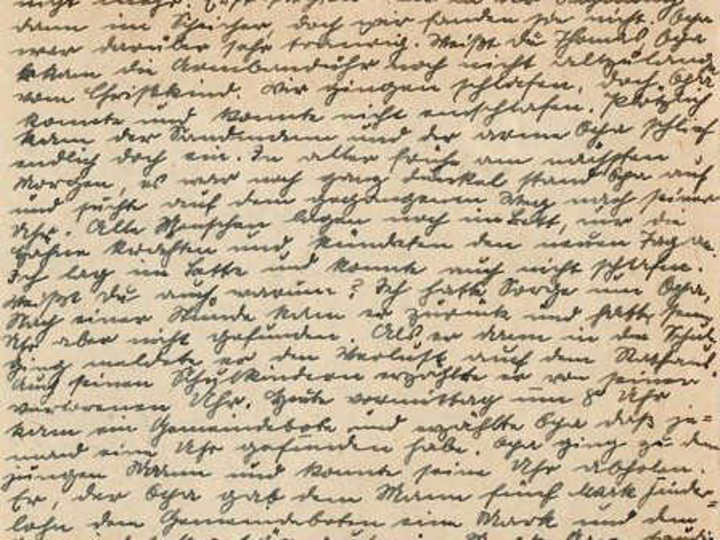 dann im Speicher, doch wir fanden sie nicht. Opa
war darüber sehr traurig. Weißt Du Thomas Opa
bekam die Armbanduhr noch nicht allzulang
vom Christkind. Wir gingen schlafen. Doch Opa
konnte und konnte nicht einschlafen. Plötzlich
kam der Sandmann und der arme Opa schlief
endlich doch ein. In aller Frühe am nächsten
Morgen, es war noch ganz dunkel stand Opa auf
und sucht auf dem gegangenen Weg nach seiner
Uhr. Alle Menschen lagen noch im Bett, nur die
Hähne krähten und kündeten den neuen Tag an.
Ich lag im Bette und konnte auch nicht schlafen.
Weißt Du auch warum? Ich hatte Sorge um Opa,
Nach einer Stunde kam er zurück und hatte seine
Uhr aber nicht gefunden. Als er dann in die Schule
ging meldete er den Verlust auf dem Rathaus.
Auch seinen Schulkindern erzählte er von seiner
verlorenen Uhr. Heute vormittag um 8 Uhr
kam ein Gemeindebote und erzählte Opa daß je=
mand eine Uhr gefunden habe. Opa ging zu dem
jungen Mann und konnte seine Uhr abholen.
Er, der Opa gab dem Mann fünf Mark Finder=
lohn dem Gemeindeboten eine Mark und dem